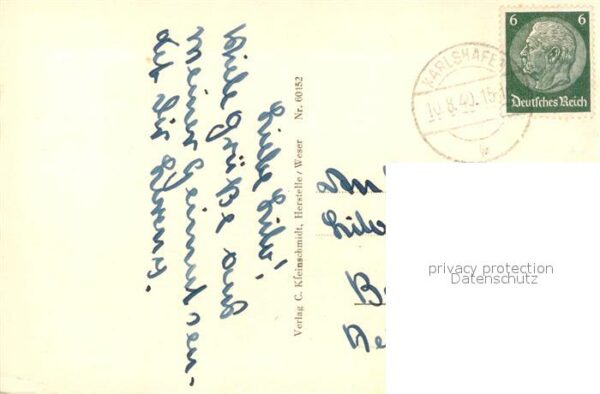 Liebe Lilo!
Viele Grüße aus
meiner Heimat sen-
det Dir
Verlag C. Kleinschmidt, Herstelle / Weser Nr. 60152
6 6
Deutsches Reich
KARLSHAFEN
10.8.40.15
An
Lilo
B
privacy protection
Datenschutz